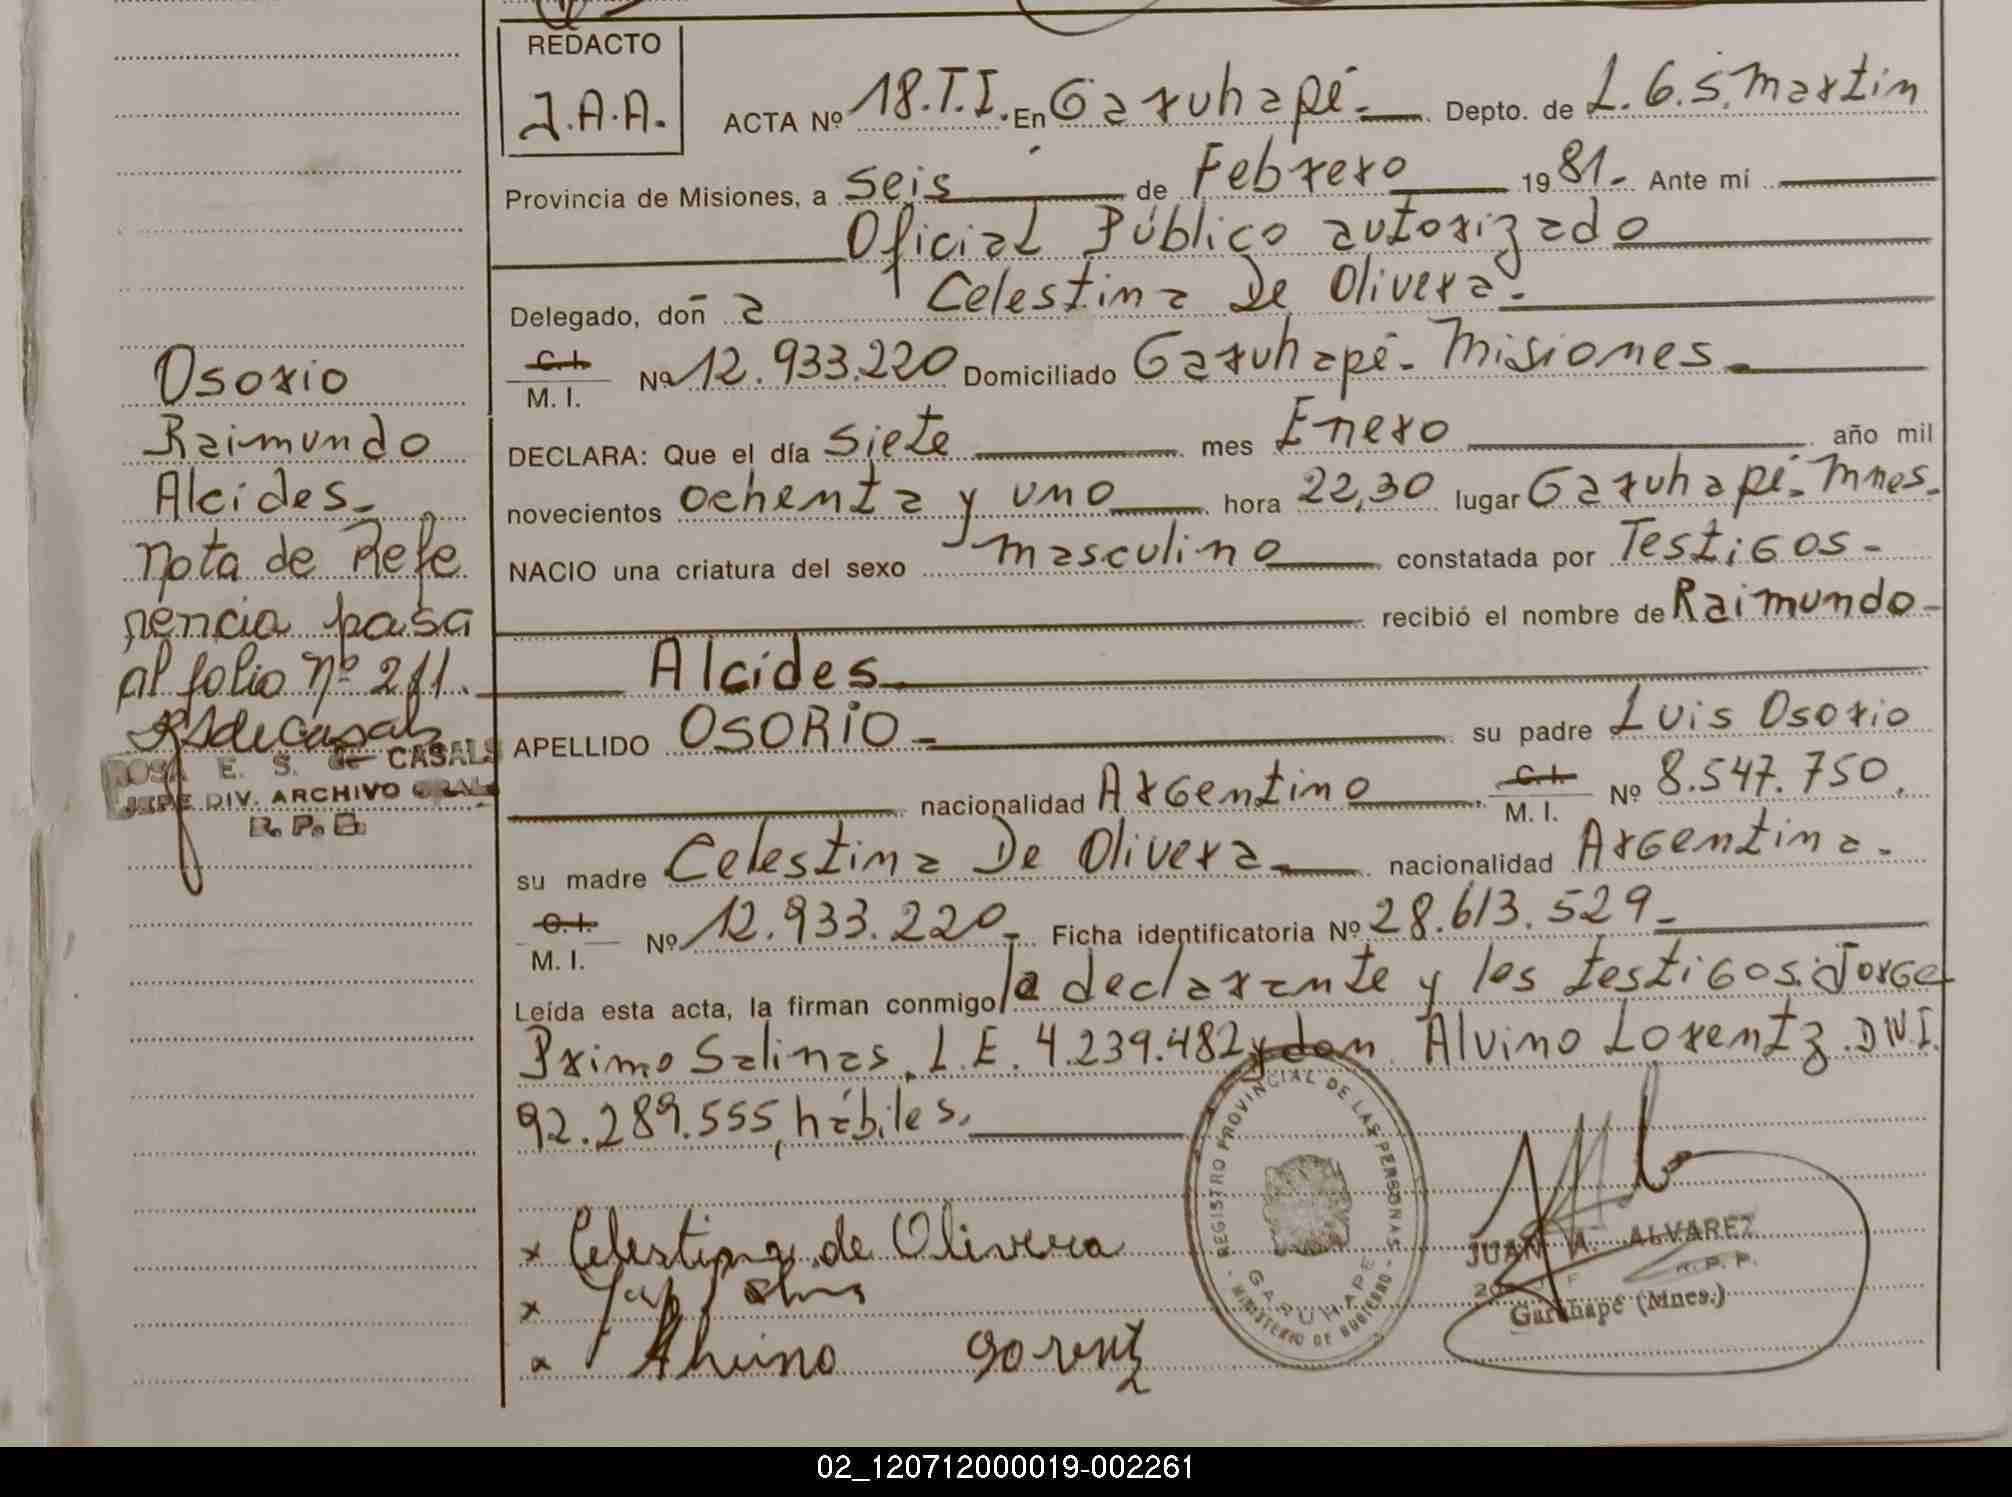 REDACTO
J.A.A.
ACTA Nº 18.T.I. En Garuhapé. Depto. de L.G.S. Martin
Provincia de Misiones, a seis de Febrero 1981. Ante mí
Oficial Público autorizado
Delegado, doña Celestina De Olivera.
C.I.
M.I. Nº 12.933.220 Domiciliado Garuhapé. Misiones.
DECLARA: Que el día siete mes Enero año mil
novecientos ochenta y uno hora 22,30 lugar Garuhapé. Mnes.
NACIO una criatura del sexo masculino constatada por Testigos.
recibió el nombre de Raimundo
Alcides
APELLIDO OSORIO su padre Luis Osorio
nacionalidad Argentino C.I. M.I. Nº 8.547.750.
su madre Celestina De Olivera nacionalidad Argentina.
C.I.
M.I. Nº 12.933.220 Ficha identificatoria Nº 28.613.529
Leída esta acta, la firman conmigo la declarante y los testigos: Jorge
Primo Salinas. L.E. 4.239.482 y don Alvino Lorentz. D.N.I.
92.289.555, hábiles.
x Celestina de Olivera
x
x Alvino Lorentz
REGISTRO PROVINCIAL DE LAS PERSONAS
GARUHAPE
MINISTERIO DE GOBIERNO
JUAN A. ALVAREZ
R.P.P.
Garuhapé (Mnes.)
Osorio
Raimundo
Alcides
Nota de Refe
rencia pasa
al folio Nº 211.
RSdeCasals
ROSA E. S. de CASALS
JEFE DIV. ARCHIVO GRAL.
R.P.P.
02_120712000019-002261